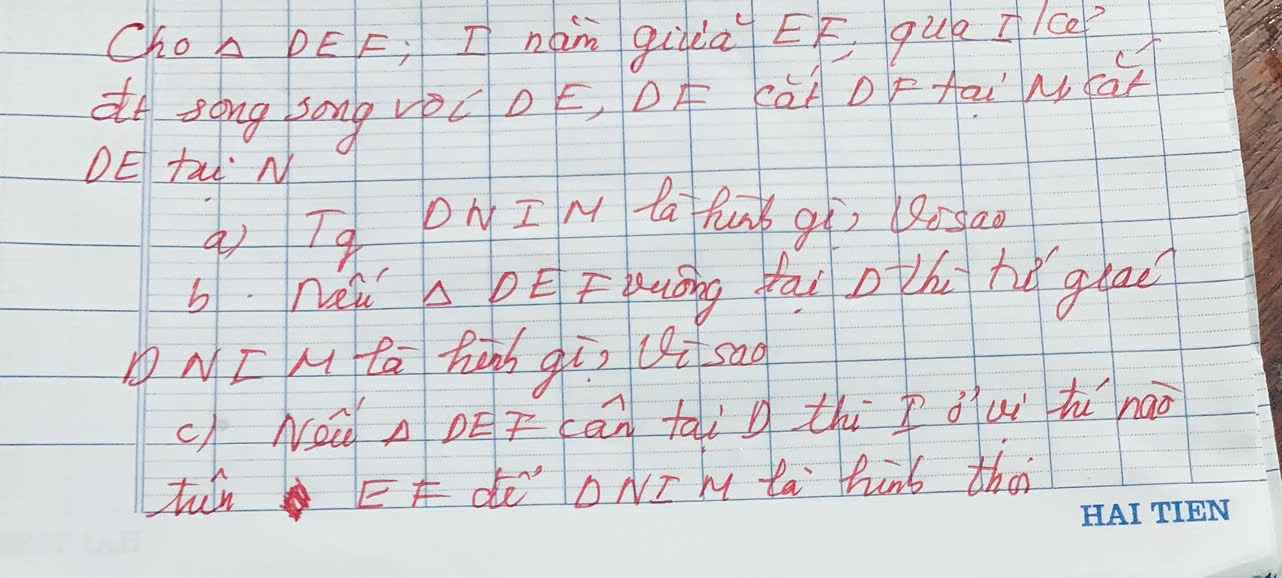 Cho Δ DEF; I nằm giữa EF, qua I kẻ
đt song song với DE, DF cắt DF tại M cắt
DE tại N
a) Tg DNIM là hình gì, Vì sao
b. Nếu Δ DEF vuông tại D thì tứ giác
DNIM là hình gì, Vì sao
c) Nếu Δ DEF cân tại D thì I ở vị trí nào
trên EF để DNIM là hình thoi
HAI TIEN